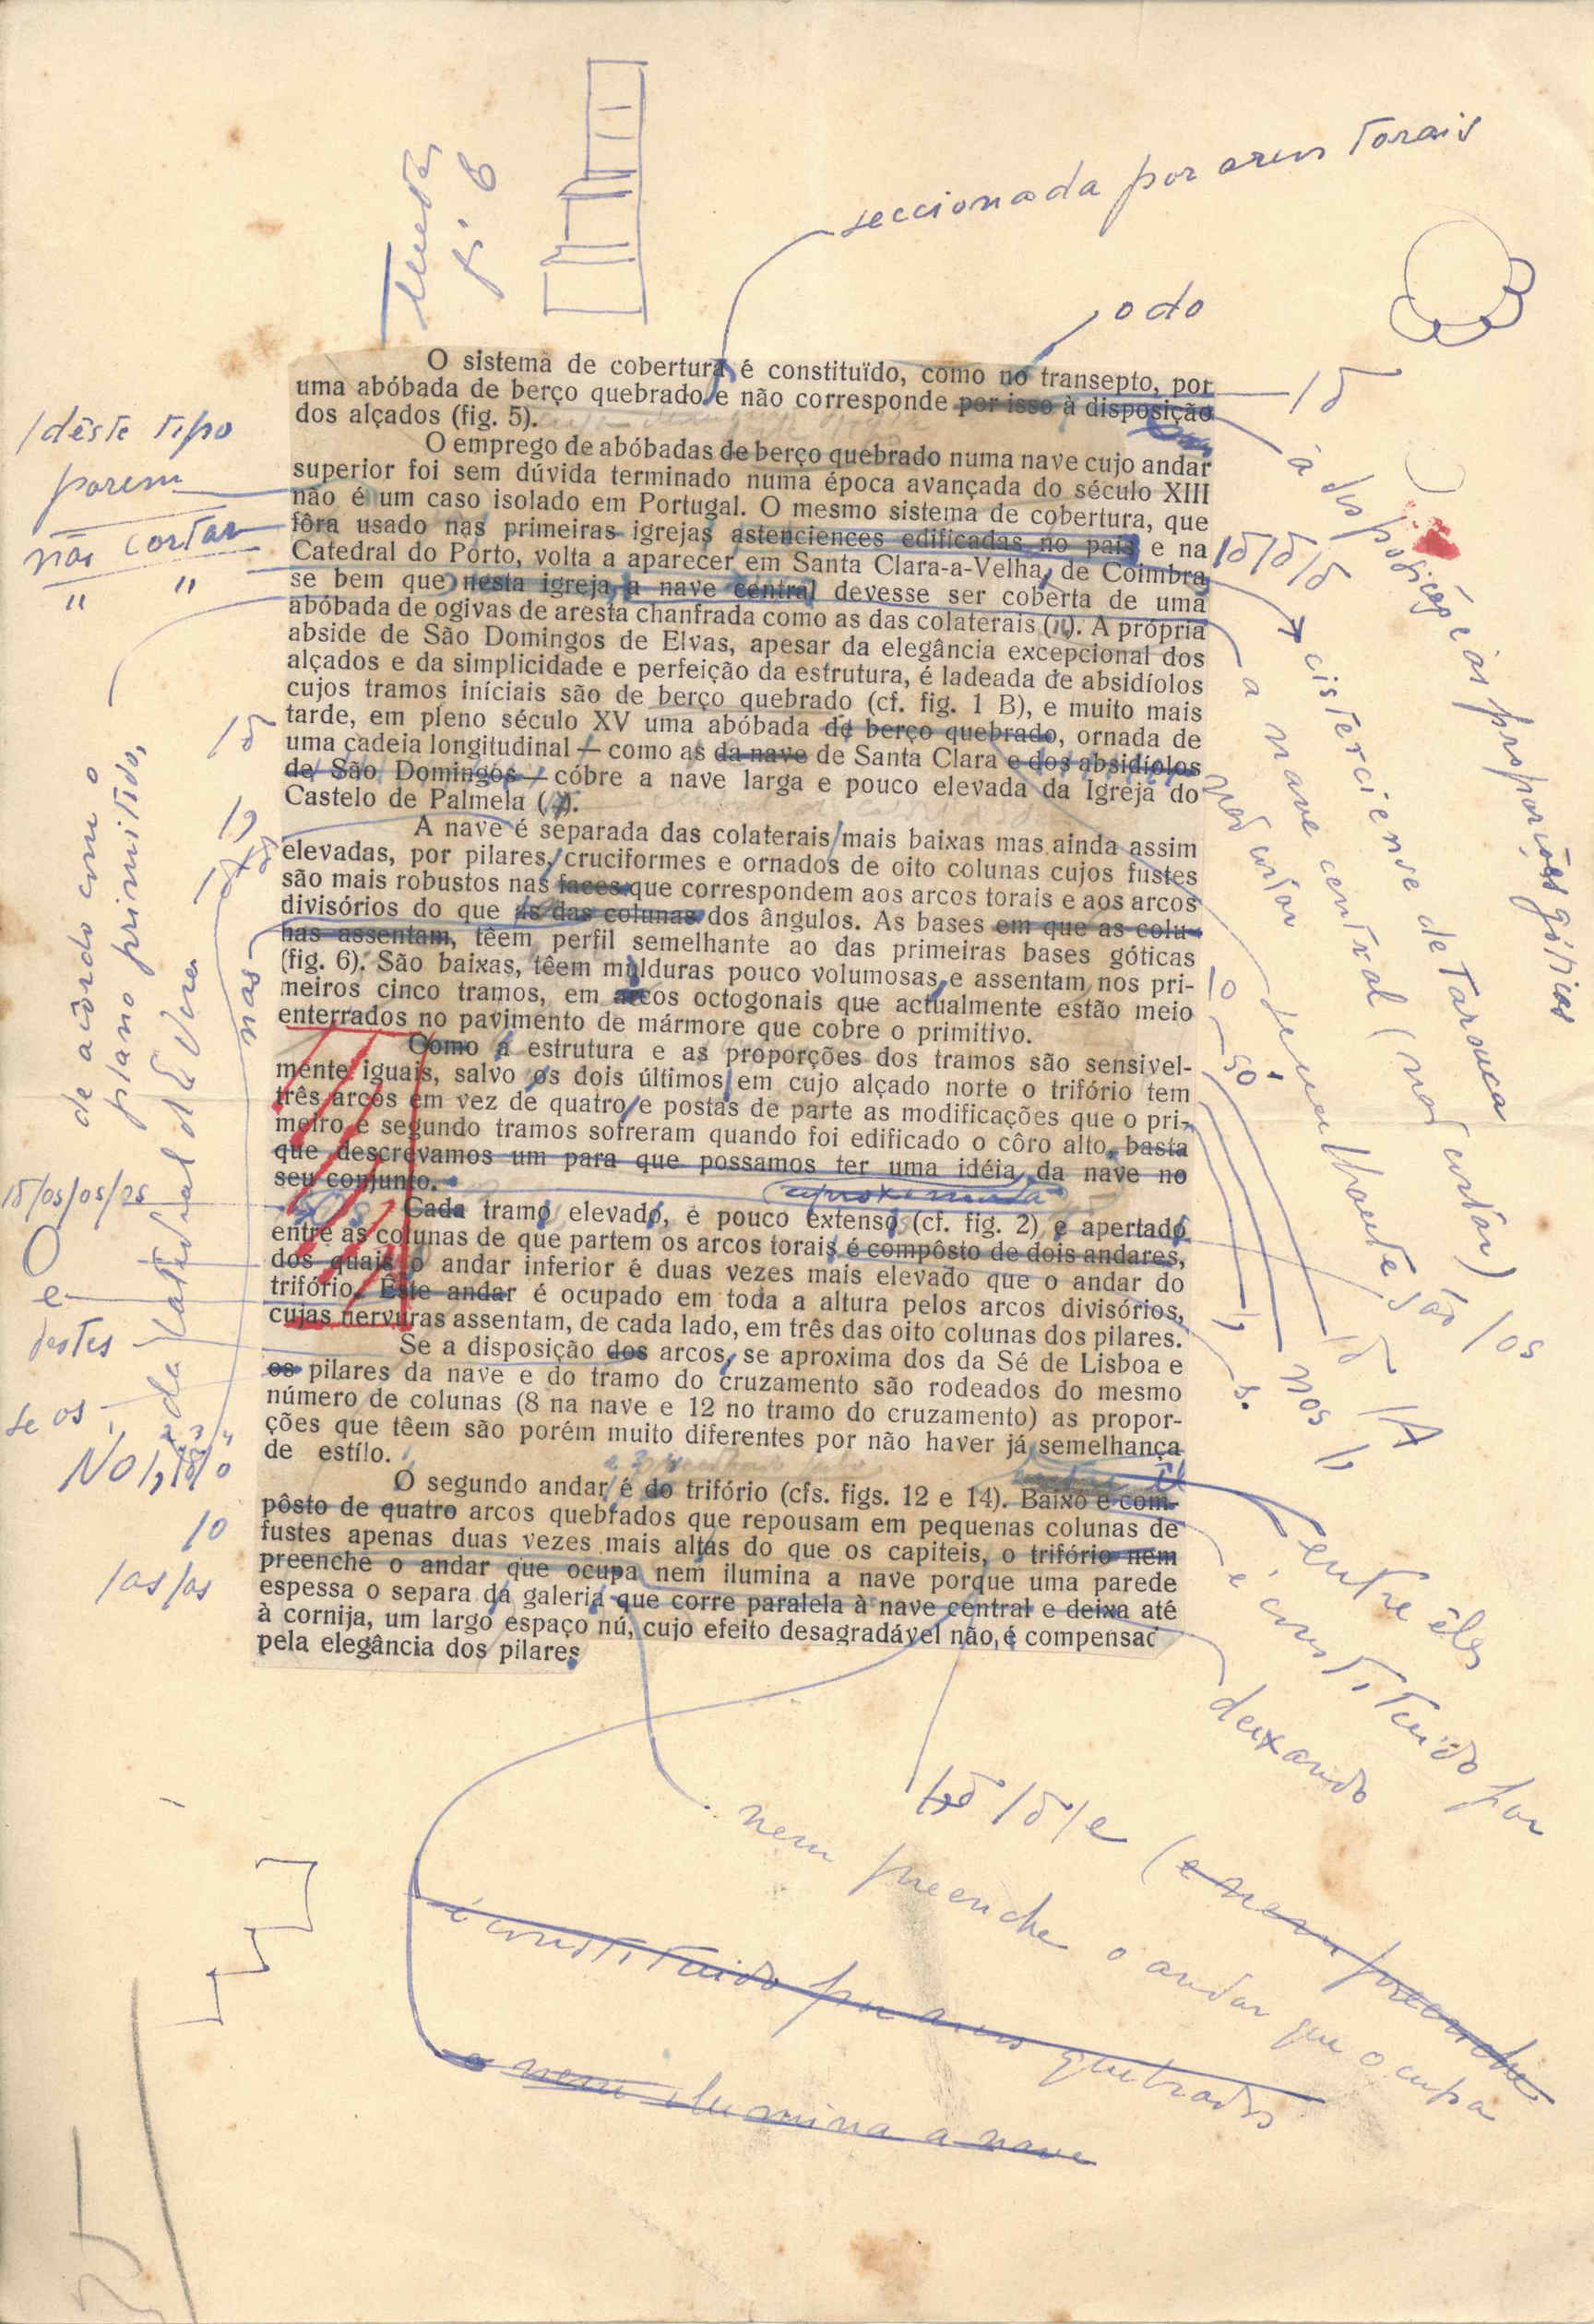 seccionada por arcos torais
o do
O sistema de cobertura é constituïdo, como no transepto, por
uma abóbada de berço quebrado e não corresponde por isso à disposição
dos alçados (fig. 5).
O emprego de abóbadas de berço quebrado numa nave cujo andar
superior foi sem dúvida terminado numa época avançada do século XIII
não é um caso isolado em Portugal. O mesmo sistema de cobertura, que
fôra usado nas primeiras igrejas astenciences edificadas no país e na
Catedral do Pôrto, volta a aparecer em Santa Clara-a-Velha, de Coimbra,
se bem que nesta igreja, a nave central devesse ser coberta de uma
abóbada de ogivas de aresta chanfrada como as das colaterais (11). A própria
abside de São Domingos de Elvas, apesar da elegância excepcional dos
alçados e da simplicidade e perfeição da estrutura, é ladeada de absidíolos
cujos tramos iníciais são de berço quebrado (cf. fig. 1 B), e muito mais
tarde, em pleno século XV uma abóbada de berço quebrado, ornada de
uma cadeia longitudinal — como as da nave de Santa Clara e dos absidíolos
de São Domingos — cóbre a nave larga e pouco elevada da Igreja do
Castelo de Palmela ( ).
A nave é separada das colaterais mais baixas mas ainda assim
elevadas, por pilares, cruciformes e ornados de oito colunas cujos fustes
são mais robustos nas faces que correspondem aos arcos torais e aos arcos
divisórios do que as das colunas dos ângulos. As bases em que as colu-
nas assentam, têem perfil semelhante ao das primeiras bases góticas
(fig. 6). São baixas, têem mulduras pouco volumosas, e assentam, nos pri-
meiros cinco tramos, em arcos octogonais que actualmente estão meio
enterrados no pavimento de mármore que cobre o primitivo.
Como a estrutura e as proporções dos tramos são sensivel-
mente iguais, salvo os dois últimos em cujo alçado norte o trifório tem
três arcos em vez de quatro, e postas de parte as modificações que o pri-
meiro e segundo tramos sofreram quando foi edificado o côro alto, basta
que descrevamos um para que possamos ter uma idéia da nave no
seu conjunto.
aproximada
Cada tramo elevado, e pouco extenso (cf. fig. 2) e apertado
entre as colunas de que partem os arcos torais é compôsto de dois andares,
dos quais o andar inferior é duas vezes mais elevado que o andar do
trifório. Êste andar é ocupado em toda a altura pelos arcos divisórios,
cujas nervuras assentam, de cada lado, em três das oito colunas dos pilares.
Se a disposição dos arcos, se aproxima dos da Sé de Lisboa e
os pilares da nave e do tramo do cruzamento são rodeados do mesmo
número de colunas (8 na nave e 12 no tramo do cruzamento) as propor-
ções que têem são porém muito diferentes por não haver já semelhança
de estílo.
O segundo andar é do trifório (cfs. figs. 12 e 14). Baixo e com-
pôsto de quatro arcos quebrados que repousam em pequenas colunas de
fustes apenas duas vezes mais altas do que os capiteis, o trifório nem
preenche o andar que ocupa nem ilumina a nave porque uma parede
espessa o separa da galeria que corre paralela à nave central e deixa até
à cornija, um largo espaço nú, cujo efeito desagradável não, é compensad
pela elegância dos pilares
/dêste tipo
porem
não cortar
" "
de acôrdo com o
plano primitido,
da Catedral de Évora
nas
/os/os/os
e
destes
se os
/o
/os/os
à disposição e às proporções góticas
cisterciense de Tarouca
a nave central (não cortar)
não cortar
semelhante, são /os
/o
nos
/A
entre êles
é constituido por
deixando
nem preenche o andar que ocupa
(e nem preenche
é constituido por arcos quebrados
e nem ilumina a nave